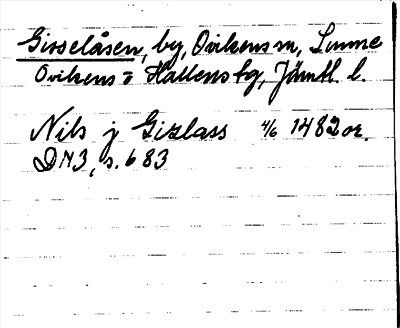 Gisselåsen, by, Ovikens m, Sunne
Ovikens o Hallens sg, Jämtl. l.
Nils j Gizlass 4/6 1482 or.
DN3, s. 683